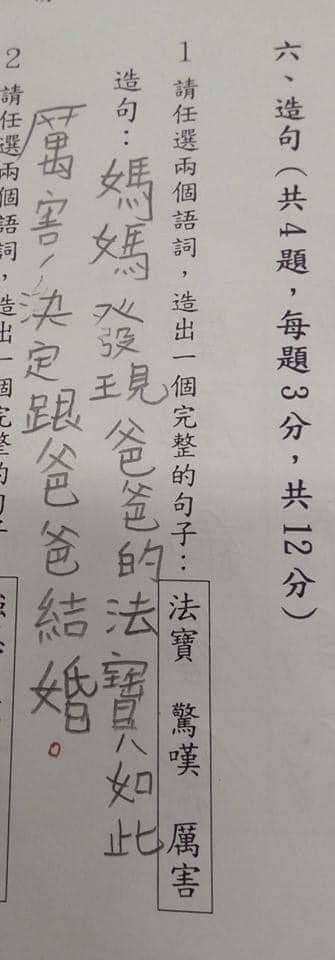 六、造句（共4題，每題3分，共12分）
1 請任選兩個語詞，造出一個完整的句子：法寶 驚嘆 厲害
造句：媽媽發現爸爸的法寶如此
厲害，決定跟爸爸結婚。
2 請任選兩個語詞，造出一個完整的句子